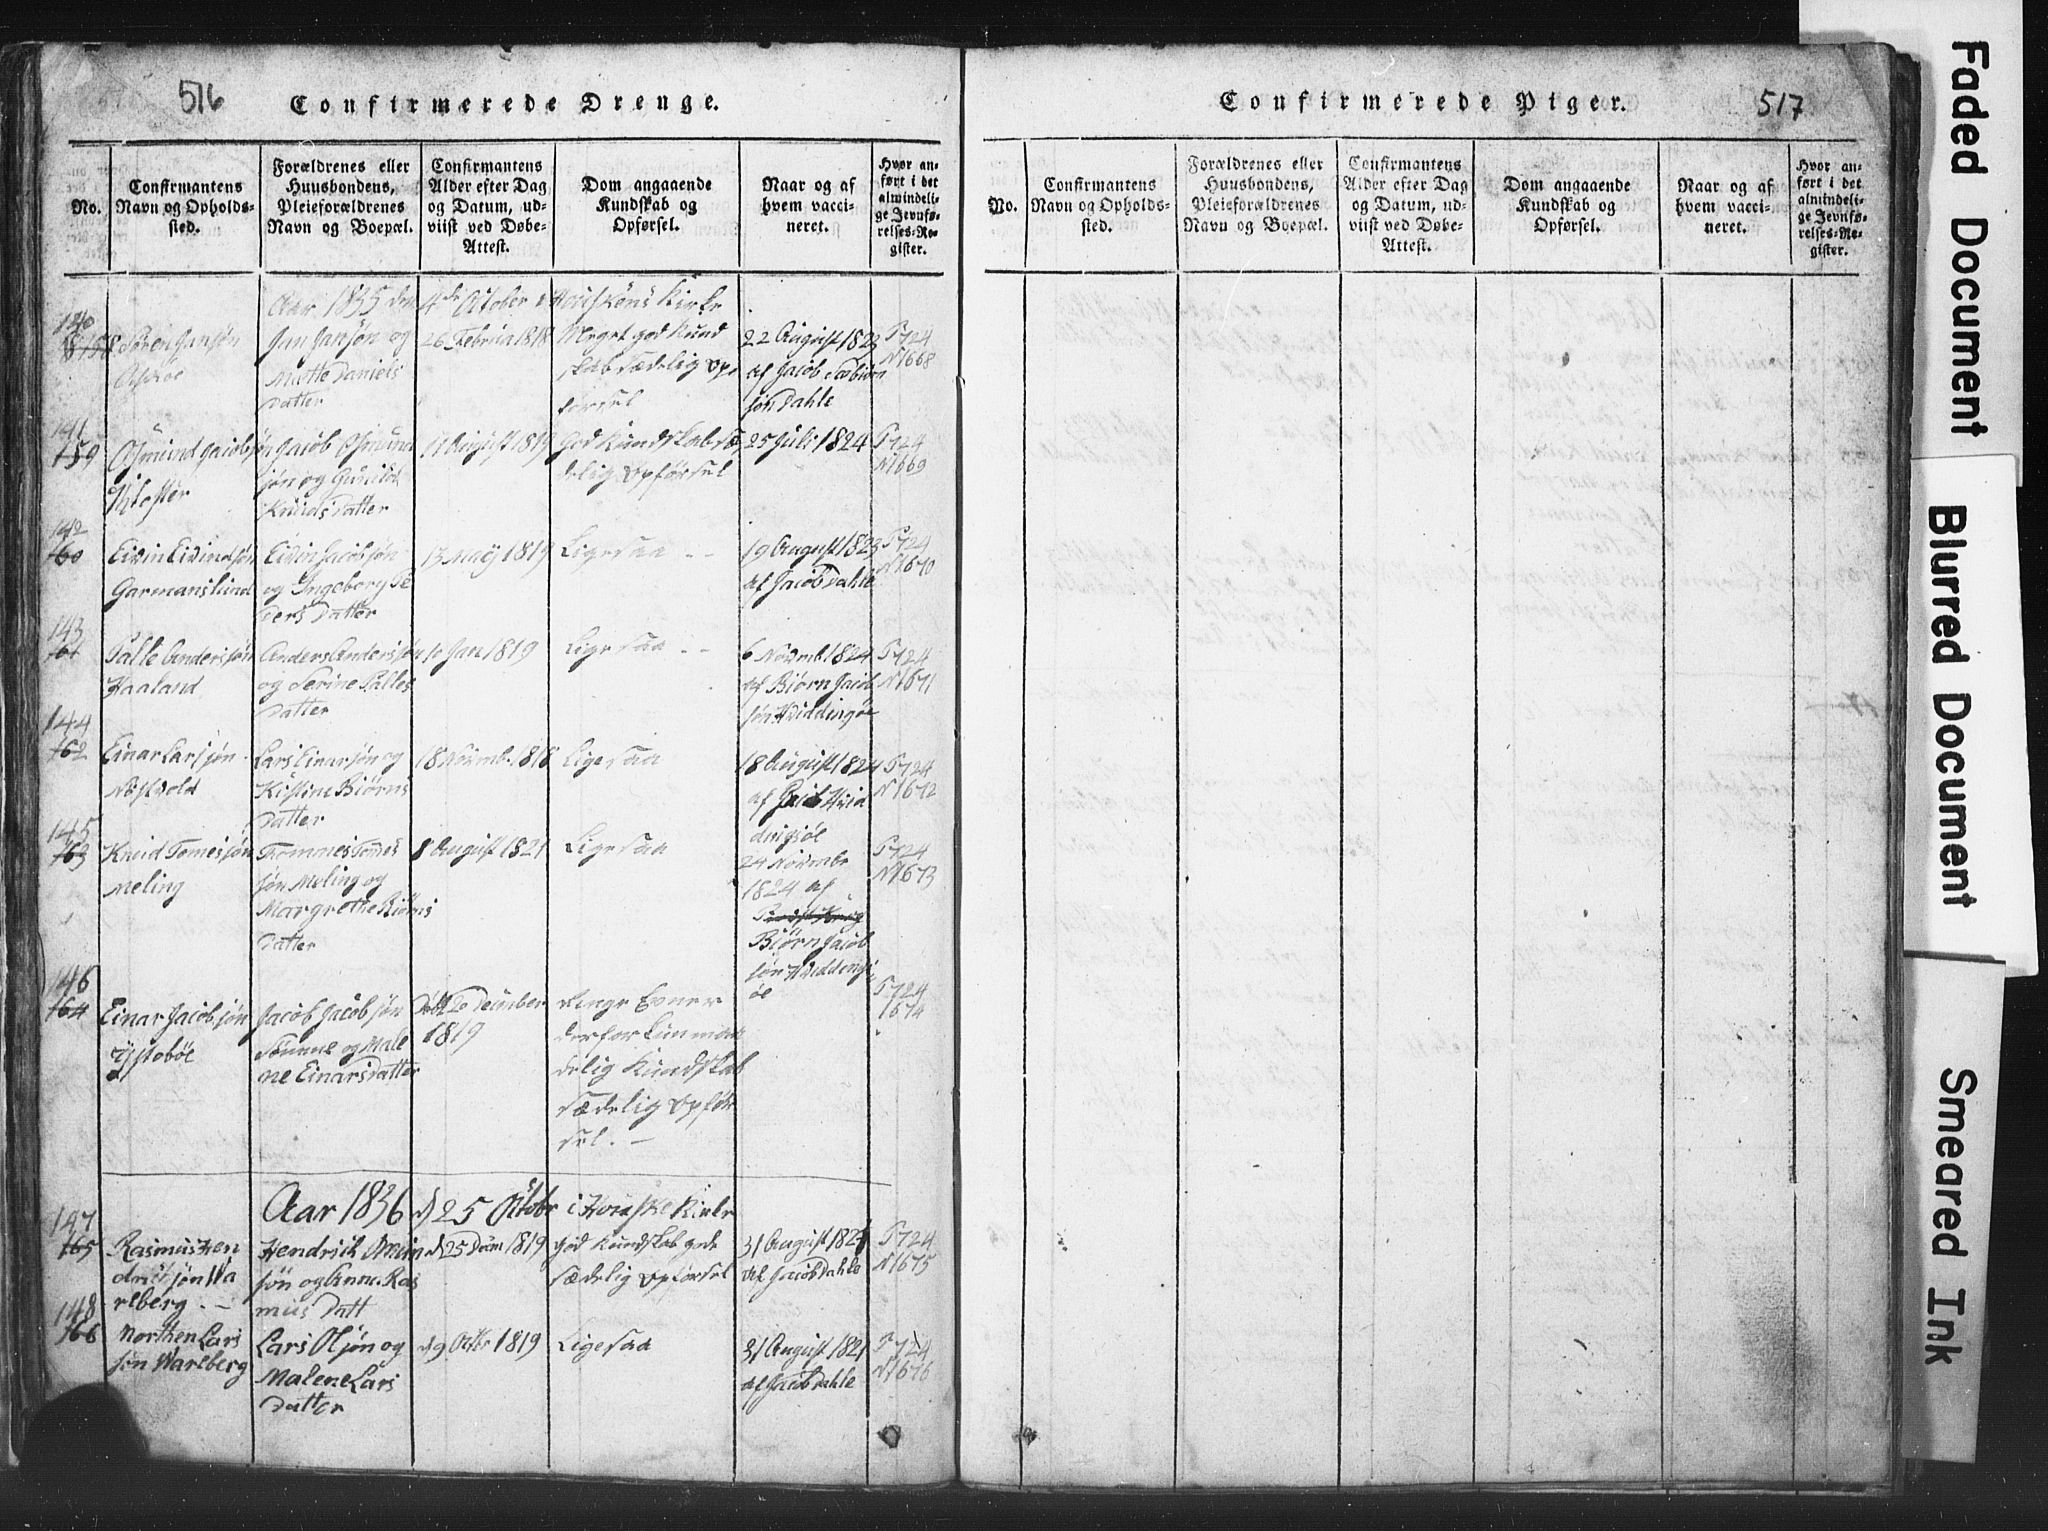 516
Confirmerede Drenge.
No.
Confirmantens
Navn og Opholds-
sted.
Forældrenes eller
Huusbondens,
Pleieforældrenes
Navn og Boepæl.
Confirmantens
Alder efter Dag
og Datum, ud-
viist ved Døbe-
Attest.
Dom angaaende
Kundskab og
Opførsel.
Naar og af
hvem vacci-
neret.
Hvor an-
ført i det
almindeli-
ge Jevnfø-
relses-Re-
gister.
Aar 1835 den 4de October i Kirke
140
158
Søren Jansøn
Jan Jansøn og
Mette Daniels
Datter
26 Februa 1818
Meget god Kund
skab sædelig Op-
førsel
22 August 1823
af Jacob Sæbiørn
søn Dahle
P 724
N 1668
141
159
Osmund Jacobsøn
Kloster
Jacob Osmund
søn og Gunild
Knuds Datter
11 August 1819
God Kundskab sæ-
delig Opførsel
25 Juli 1824
P 724
N 1669
142
160
Eivin Eivindsøn
Garmanslund
Eivin Jacobsøn
og Ingeborg Pe
ders Datter
13 Maij 1819
Ligesaa - -
19 August 1823
af Jacob Dahle
P 724
N 1670
143
161
Palle Andersøn
Haaland
Anders Andersøn
og Serine Palles
Datter
10 Jan 1819
Ligesaa - -
6 Novmb 1824
af Biørn Jacob
søn Hviddingøe
P 724
N 1671
144
162
Einar Larsøn
Nostvold
Lars Einarsøn og
Kistine Biørns
Datter
18 Novmb. 1818
Ligesaa
18 August 1824
af
P 724
N 1672
145
163
Knud Tomesøn
Meling
Thommes Tomes
søn Meling og
Margrethe Biørns
Datter
8 August 1821
Ligesaa
24 Novmbr
1824 af
Biørn Jacob
søn Hviddingj
øe
P 724
N 1673
146
164
Einar Jacobsøn
Ystebøe
Jacob Jacobsøn
Sømme og Male
ne Einars Datter
December
1819
Ringe Evner
derfor kun maa
delig Kundskab
sædelig Opfør
sel. -
P 724
1674
Aar 1836 d 25 Octobr i Kirke
147
165
Rasmus Hen
dricsøn Wa
rlberg. -
Hendrich
søn og Anne Ras
mus Datt
d 25 Decm 1819
God Kundskab gode
sædelig Opførsel
31 August 1821
af Jacob Dahle
P 724
N 1675
148
166
Morthen Lars
søn Warlberg
Lars Olsøn og
Malene Lars
Datter
d 9 Octbr 1819
Ligesaa
31 August 1821
af Jacob Dahle
P 724
N 1676
Confirmerede Piger.
517
No.
Confirmantens
Navn og Opholds-
sted.
Forældrenes eller
Huusbondens,
Pleieforældrenes
Navn og Boepæl.
Confirmantens
Alder efter Dag
og Datum, ud-
viist ved Døbe-
Attest.
Dom angaaende
Kundskab og
Opførsel.
Naar og af
hvem vacci-
neret.
Hvor an-
ført i det
almindeli-
ge Jevnfø-
relses-Re-
gister.
Faded Document
Blurred Document
Smeared Ink